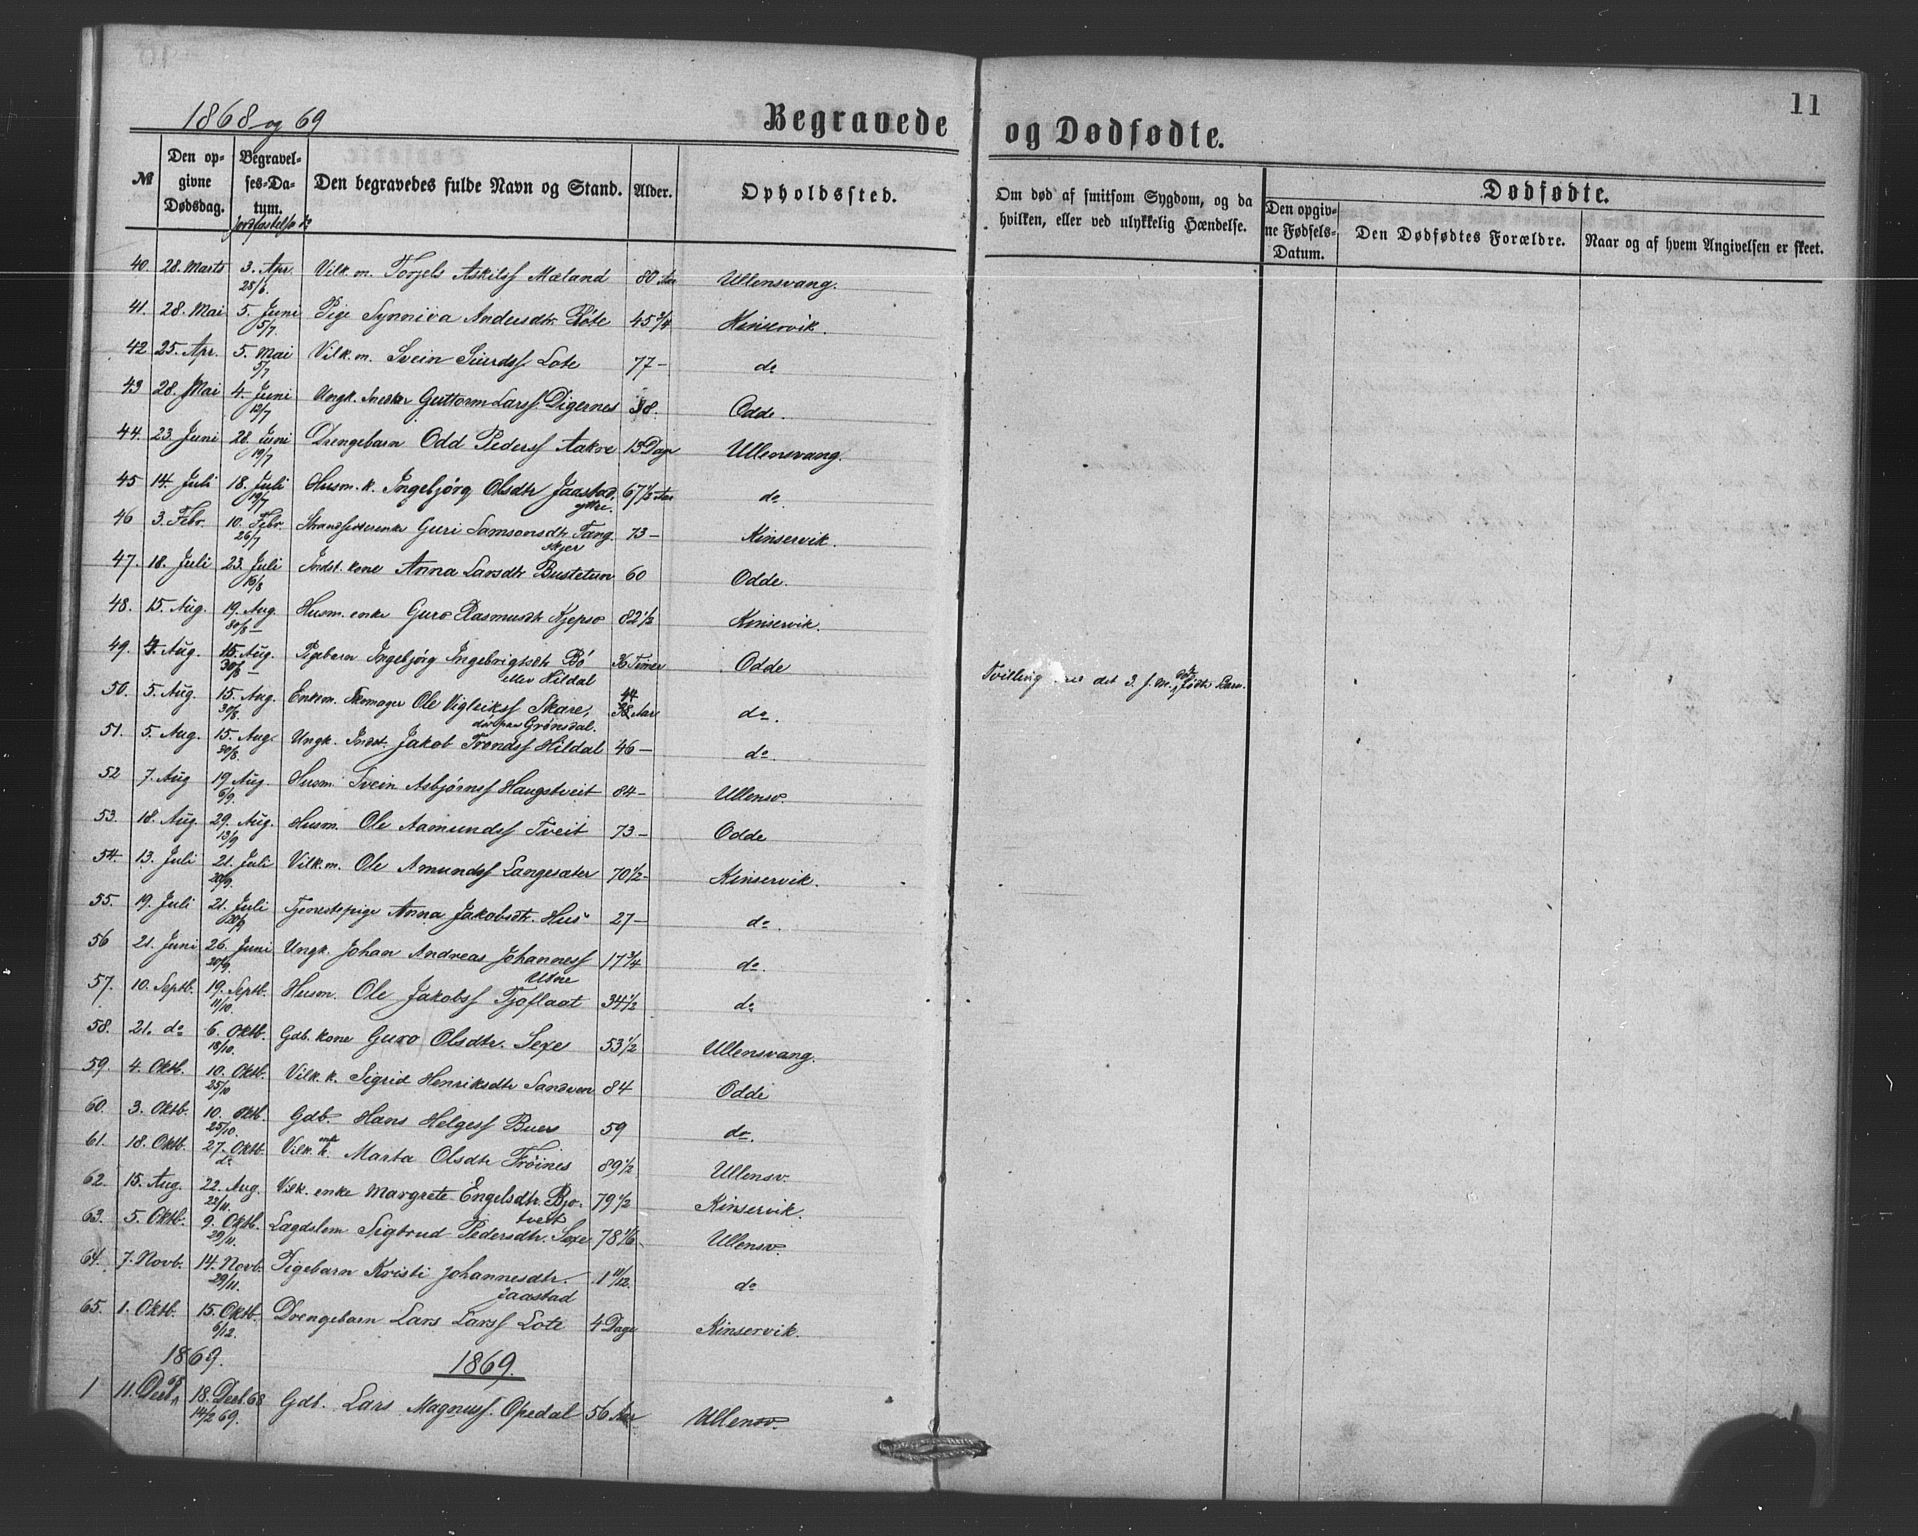 1868 og 69
Begravede og Dødfødte.
11
№
Den opgivne Dødsdag.
Begravelses-Datum.
Jordfæstelse
Den begravedes fulde Navn og Stand.
Alder.
Opholdssted.
Om død af smitsom Sygdom, og da hvilken, eller ved ulykkelig Hændelse.
Dødfødte.
Den opgivne Fødsels-Datum.
Den Dødfødtes Forældre.
Naar og af hvem Angivelsen er skeet.
40. 28. Marts 3. Apr. 28/6. Vilk. m. Torjels Askilsf Mæland 80 Aar Ullensvang.
41. 28. Mai 5. Juni 5/7. Pige Synniva Andersdtr. Røte 45 3/4 Kinservik.
42 25. Apr. 5. Mai 5/7 Vilk. m. Svein Siurdsf. Lote 77 – do
43 28. Mai 4. Juni 12/7 Ungk. Guttorm Larsf. Digernes 38. Odde.
44. 23. Juni 28. Juni 19/7 Drengebarn Odd Pedersf Aakre 13 Dage Ullensvang.
45 14. Juli 18. Juli 19/7 Husm. k. Ingebjørg Olsdtr Jaastad, yttre. 67 1/3 Aar do
46 3. Febr. 10. Febr. 26/7 Strandsidderenke Guri Samsonsdtr Tangskjer 73 – Kinservik.
47. 18. Juli 23. Juli 16/8 Indst. kone Anna Larsdtr Bustetun 60 Odde.
48. 15. Aug. 19. Aug. 30/8 – Husm. enke Guro Rasmusdtr Kjepso 82 1/3 Kinservik.
49. 4. Aug. 15. Aug. 30/8 – Pigebarn Ingebjørg Ingebrigtsdtr Bø eller Hildal Timer Odde Tvilling det 3. f. M. fødte Barn.
50. 5. Aug. 15. Aug. 30/8. Enkem. Skomager Ole Vigleiksf Skare, Grønsdal. 44 38 Aar do.
51. 5. Aug. 15. Aug. 30/8. Ungk. Indst. Jakob Trondsf Hildal 46 – do.
52 7. Aug 19 Aug. 6/9. Husm. Svein Asbjørnsf Haugstveit 84 – Ullensv.
53. 18. Aug. 29. Aug. 13/9 Husm. Ole Aamundsf Tveit 73 – Odde
54. 13. Juli 21. Juli 20/9. Vilk. m. Ole Amundsf Langesæter 70 1/2 – Kinservik.
55. 19. Juli 21. Juli 20/9 Tjenestepige Anna Jakobsdtr. Hus 27 – do.
56 21. Juni 26. Juni 20/9. Ungk. Johan Andreas Johannesf Utne 17 3/4 do.
57. 10. Septb. 19. Septb. 11/10. Husm. Ole Jakobsf Tjoflaat 34 1/2 do
58. 21. do 6. Oktb. 18/10. Gdb. kone Guro Olsdtr. Sexe 53 1/2 Ullensvang.
59 4. Oktb. 10. Oktb. 25/10 Vilk. k. Sigrid Henriksdtr Sandven 84 Odde
60. 3. Oktb. 10. Oktb. 25/10. Gdb. Hans Helgesf Buer 59 do.
61. 18. Oktb. 27. Oktb. do Vilk. k. enke Marta Olsdtr Frøines 89 1/2 Ullensv.
62. 15. Aug. 22. Aug. 22/11. Vilk. enke Margrete Engelsdtr. Bjotveit 79 1/2 Kinservik.
63. 5. Oktb. 9. Oktb. 29/11. Lægdslem Sigtrud Pedersdtr. Sexe 78 1/6 – Ullensv.
64. 7. Novb. 14. Novb. 29/11. Pigebarn Kristi Johannesdtr. Jaastad 1 11/12. do
65. 1. Oktb. 15. Oktb. 6/12. Drengebarn Lars Larsf Lote 4 Dage Kinservik.
1869. 1869.
1 11. Decb. 68 18. Decb. 68 14/2 69. Gdb. Lars Magnusf. Opedal 56 Aar Ullensv.